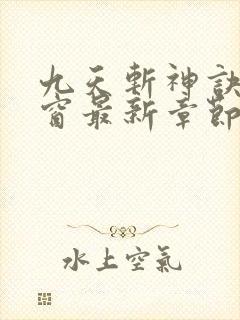 九天斬神訣
窗最新章節
水上空氣